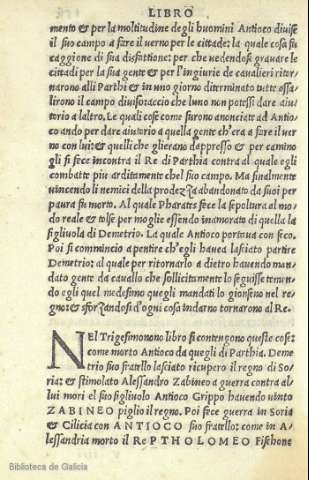 LIBRO
mento & per la moltitudine degli huomini Antioco diuise
il suo campo a fare il uerno per le cittade: la quale cosa fu
caggione di sua disfattione: per che uedendosi grauare le
cittadi per la sua gente & per l'ingiurie de caualieri ritor-
narono alli Parthi & in uno giorno diterminato tutte assa-
lirono il campo diuiso accio che luno non potessi dare aiu-
torio a laltro. Le quali cose come furono anonciate ad Antio-
co ando per dare aiutorio a quella gente ch'era a fare il uer
no con lui: & quelli che glierano dappresso & per camino
gli si fece incontra il Re di Parthia contra al quale egli
combatte piu arditamente chel suo campo. Ma finalmente
uincendo li nemici della prodezza abandonato da suoi per
paura fu morto. Al quale Pharates fece la sepoltura al mo-
do reale & tolse per moglie essendo inamorato di quella la
figliuola di Demetrio. La quale Antioco portaua con seco.
Poi si commincio a pentire ch'egli hauea lasciato partire
Demetrio: al quale per ritornarlo a dietro hauendo man-
dato gente da cauallo che sollicitamente lo seguisse temen-
do egli quel medesimo quegli mandati lo gionseno nel re-
gno: & sforzandosi d'ogni cosa indarno tornarono al Re.
NEl Trigesimonono libro si contengono queste cose:
come morto Antioco da quegli di Parthia. Deme
trio suo fratello lasciato ricupero il regno di So-
ria: & stimolato Alessandro Zabineo a guerra contra al
lui mori el suo figliuolo Antioco Grippo hauendo uinto
ZABINEO piglio il regno. Poi fece guerra in Soria
& Cilicia con ANTIOCO suo fratello: come in A-
lessandria morto il Re PTHOLOMEO Fischone
Biblioteca de Galicia